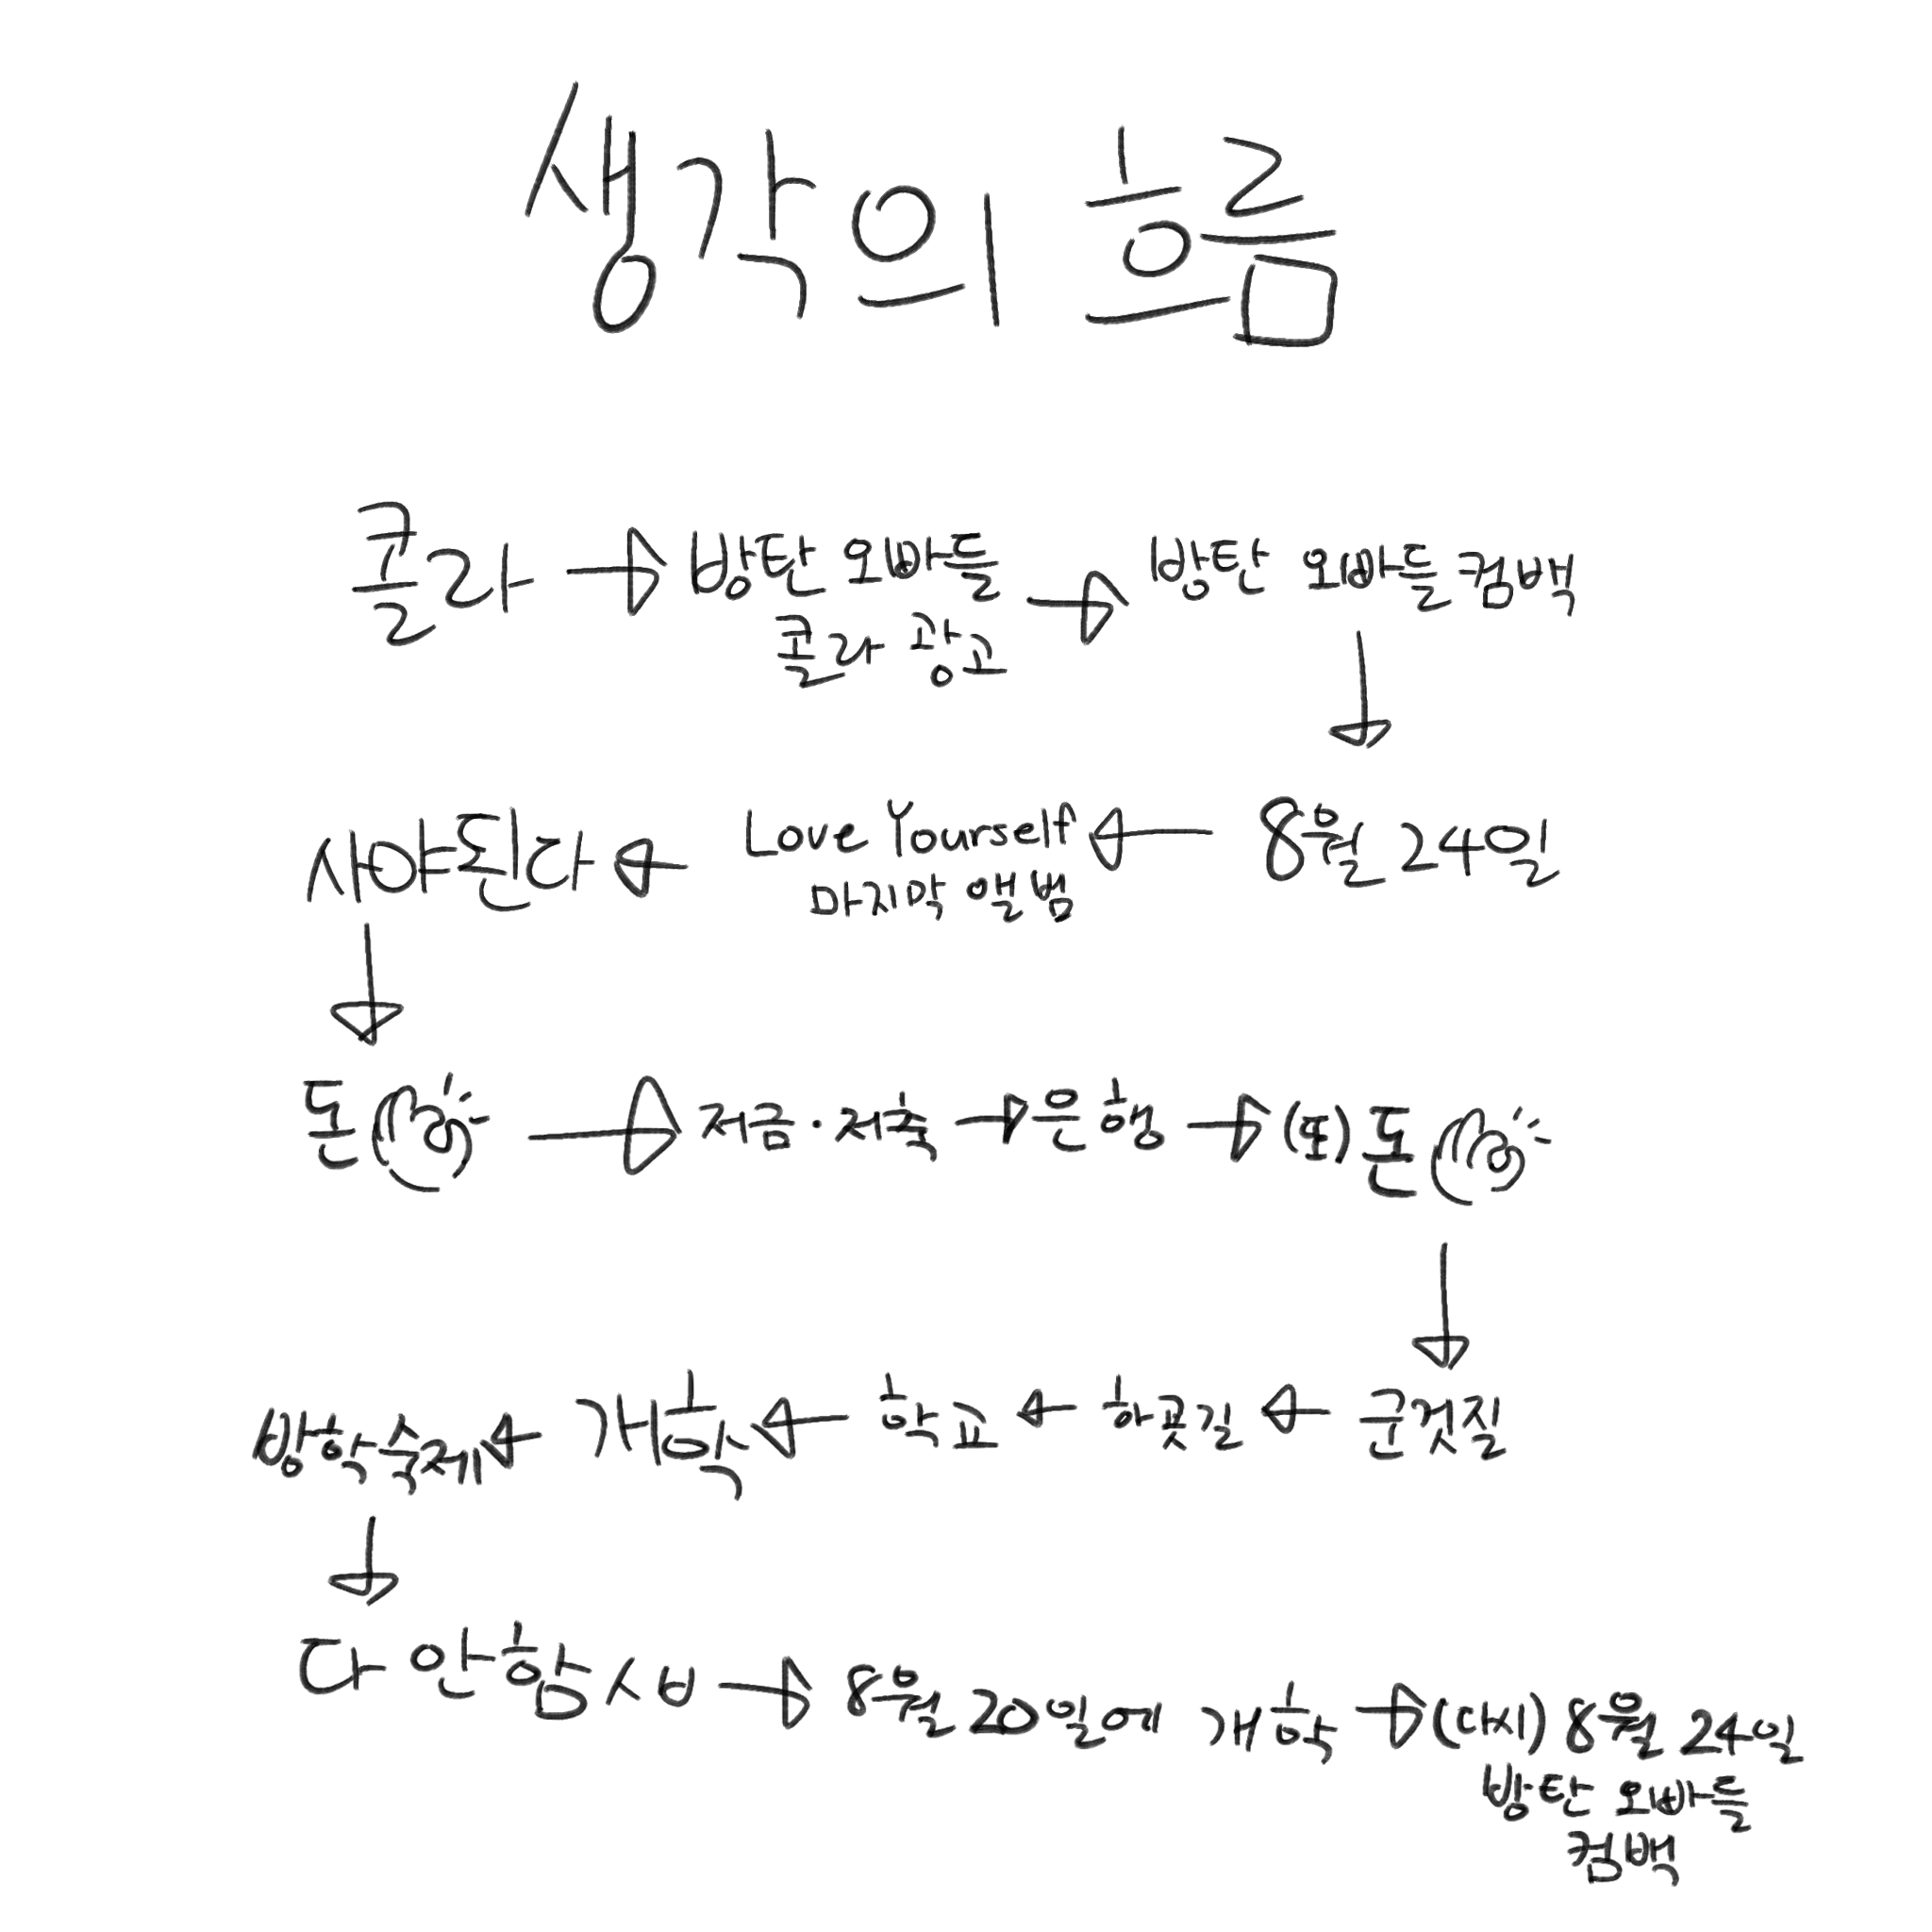 생각의 흐름
콜라 → 방탄 오빠들 콜라 광고 → 방탄 오빠들 컴백
↓
8월 24일
← Love Yourself
마지막 앨범
← 사야된다
↓
돈 → 저금·저축 → 은행 → (또) 돈
↓
군것질 ← 하굣길 ← 학교 ← 개학 ← 방학숙제
↓
다 안함 ㅅㅂ → 8월 20일에 개학 → (다시) 8월 24일
방탄 오빠들
컴백